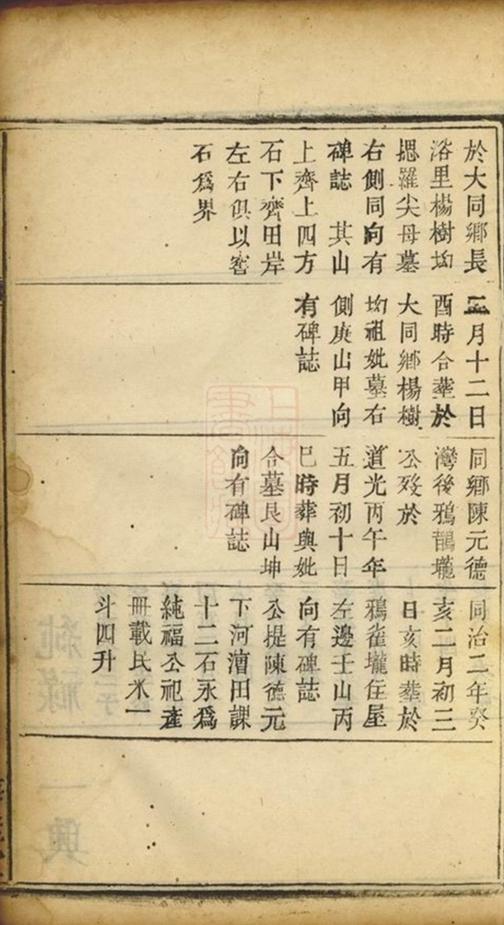 於大同鄉長
浴里楊樹坳
摁羅尖母墓
右側同向有
碑誌　其山
上齊上四方
石下齊田岸
左右俱以窖
石爲界
月十二日
酉時合葬於
大同鄉楊樹
坳祖妣墓右
側庚山甲向
有碑誌
同鄉陳元德
灣後鴉鵲壠
公歿於
道光丙午年
五月初十日
巳時葬與妣
合墓艮山坤
向有碑誌
同治二年癸
亥二月初三
日亥時葬於
鴉雀壠住屋
左邊壬山丙
向有碑誌
公提陳德元
下河漕田課
十二石永爲
純福公祀產
冊載民米一
斗四升